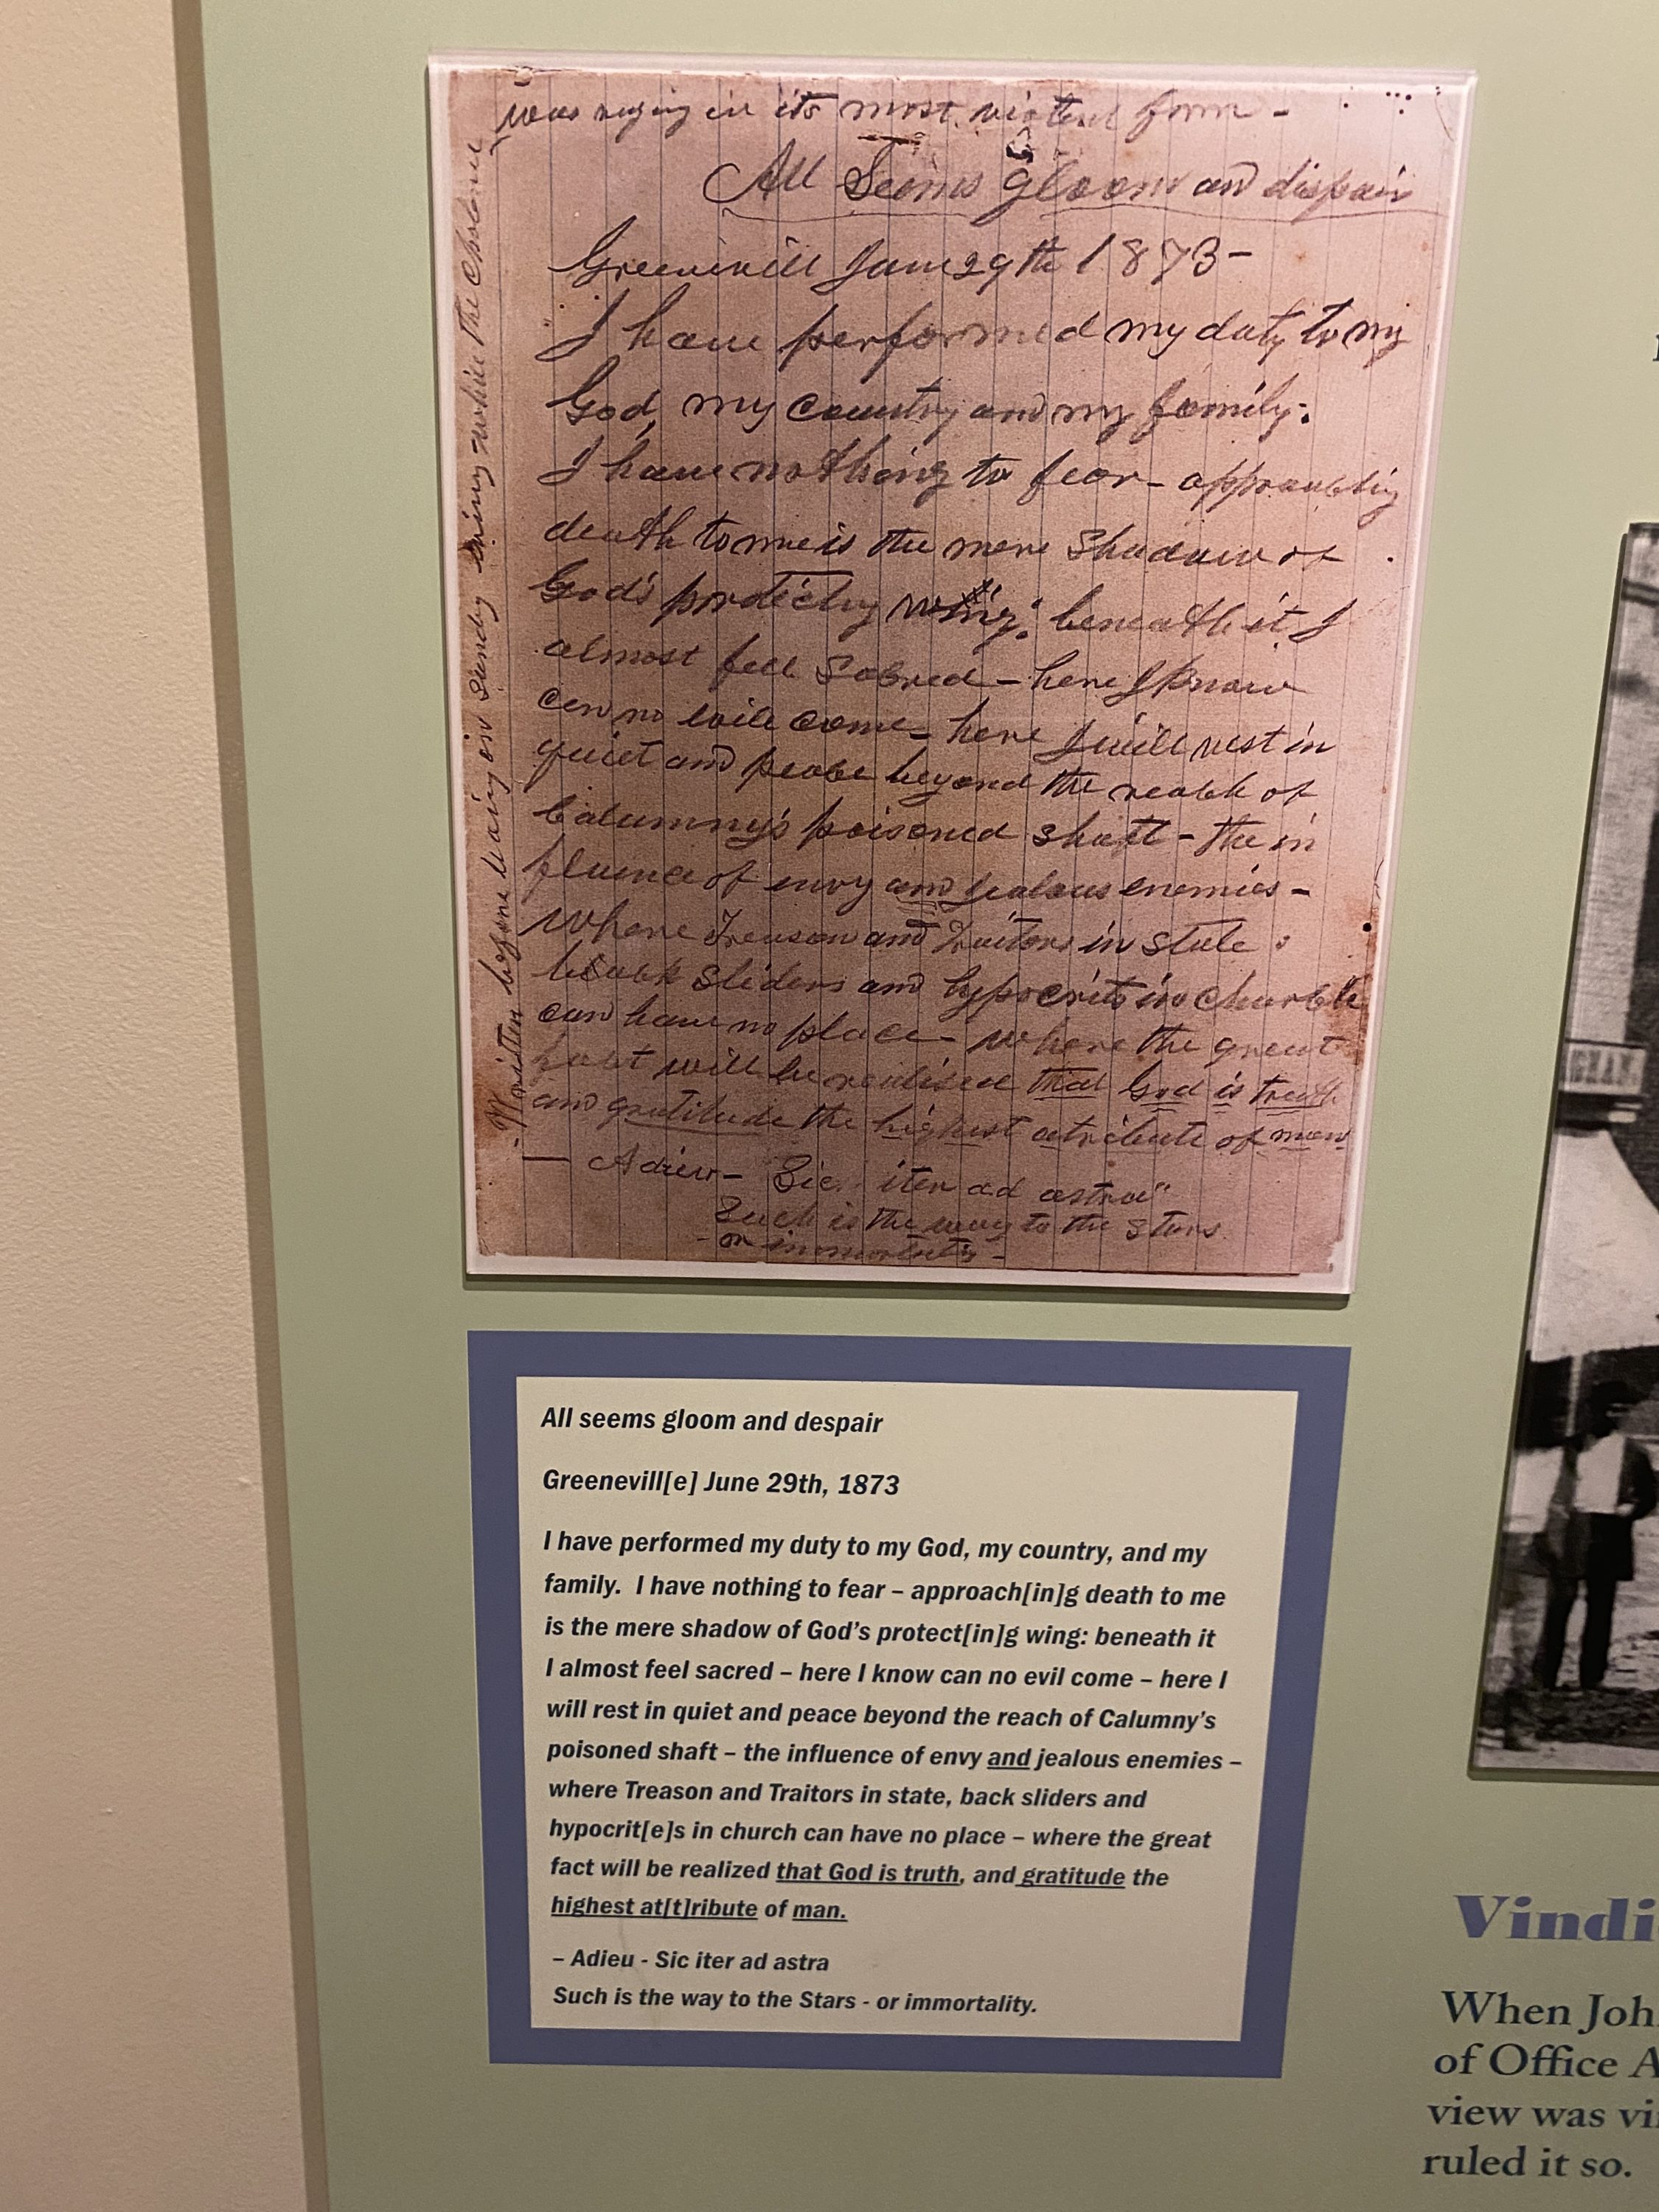 was raging in its most violent form -
All Seems gloom and dispair
Greenvill June 29th 1873-
I have performed my duty to my
God, my country and my family:
I have nothing to fear - approaching
death to me is the mere shadow of
God's protectig wing: beneath it I
almost feel Sacred - here I know
can no evil come - here I will rest in
quiet and peace beyond the reach of
Calumny's poisoned shaft - the in
fluence of envy and jealous enemies -
where Treason and Traitors in state
back sliders and hypocrits in Church
can have no place - where the great
fact will be realized that God is truth
and gratitude the highest atribute of man
— Adieu - Sic iter ad astra"
Such is the way to the Stars
- or immortality -
- Written before laying on Sundy evining while the Cholera
All seems gloom and despair
Greenevill[e] June 29th, 1873
I have performed my duty to my God, my country, and my
family. I have nothing to fear – approach[in]g death to me
is the mere shadow of God's protect[in]g wing: beneath it
I almost feel sacred – here I know can no evil come – here I
will rest in quiet and peace beyond the reach of Calumny's
poisoned shaft – the influence of envy and jealous enemies –
where Treason and Traitors in state, back sliders and
hypocrit[e]s in church can have no place – where the great
fact will be realized that God is truth, and gratitude the
highest at[t]ribute of man.
– Adieu - Sic iter ad astra
Such is the way to the Stars - or immortality.
Vindi
When Joh
of Office A
view was vi
ruled it so.